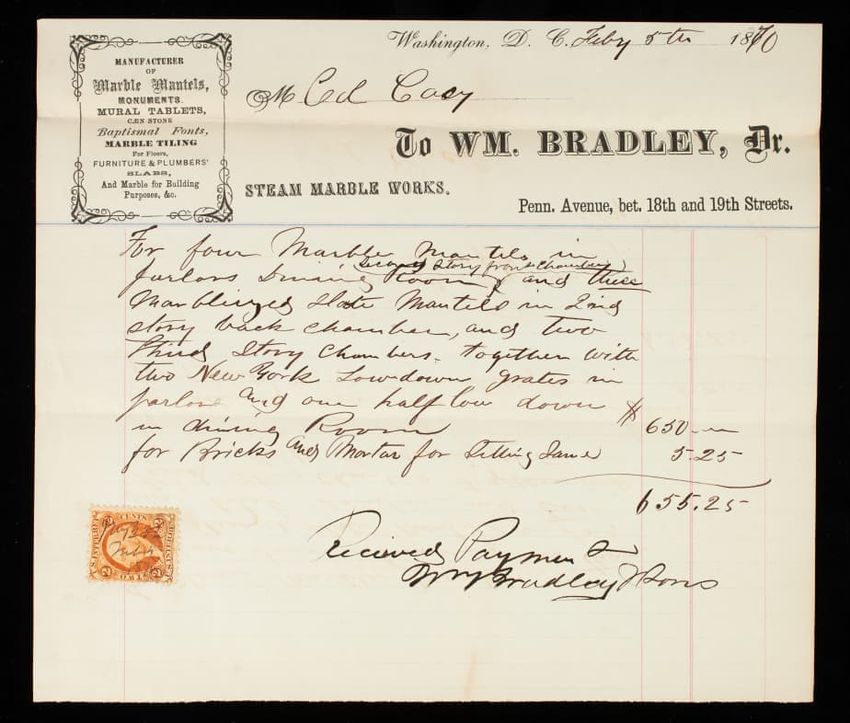 Washington, D. C. Feby 5th 1870
MANUFACTURER
OF
Marble Mantels,
MONUMENTS
MURAL TABLETS,
CAEN STONE
Baptismal Fonts,
MARBLE TILING
For Floors,
FURNITURE & PLUMBERS'
SLABS,
And Marble for Building
Purposes, &c.
M Col Casy
To WM. BRADLEY, Dr.
STEAM MARBLE WORKS.
Penn. Avenue, bet. 18th and 19th Streets.
For four Marble Mantels in
second story front chamber
parlors Dining room and three
Marblized Slate Mantels in 2nd
story back chamber, and two
third story chambers. together with
two New York Lowdown grates in
parlors and one half low down
in dining Room $ 650.
for Bricks and Mortar for Setting Same 5.25
655.25
Recieved Payment
Wm Bradley & Sons
2 CENTS 2
U.S. INTER. REV.